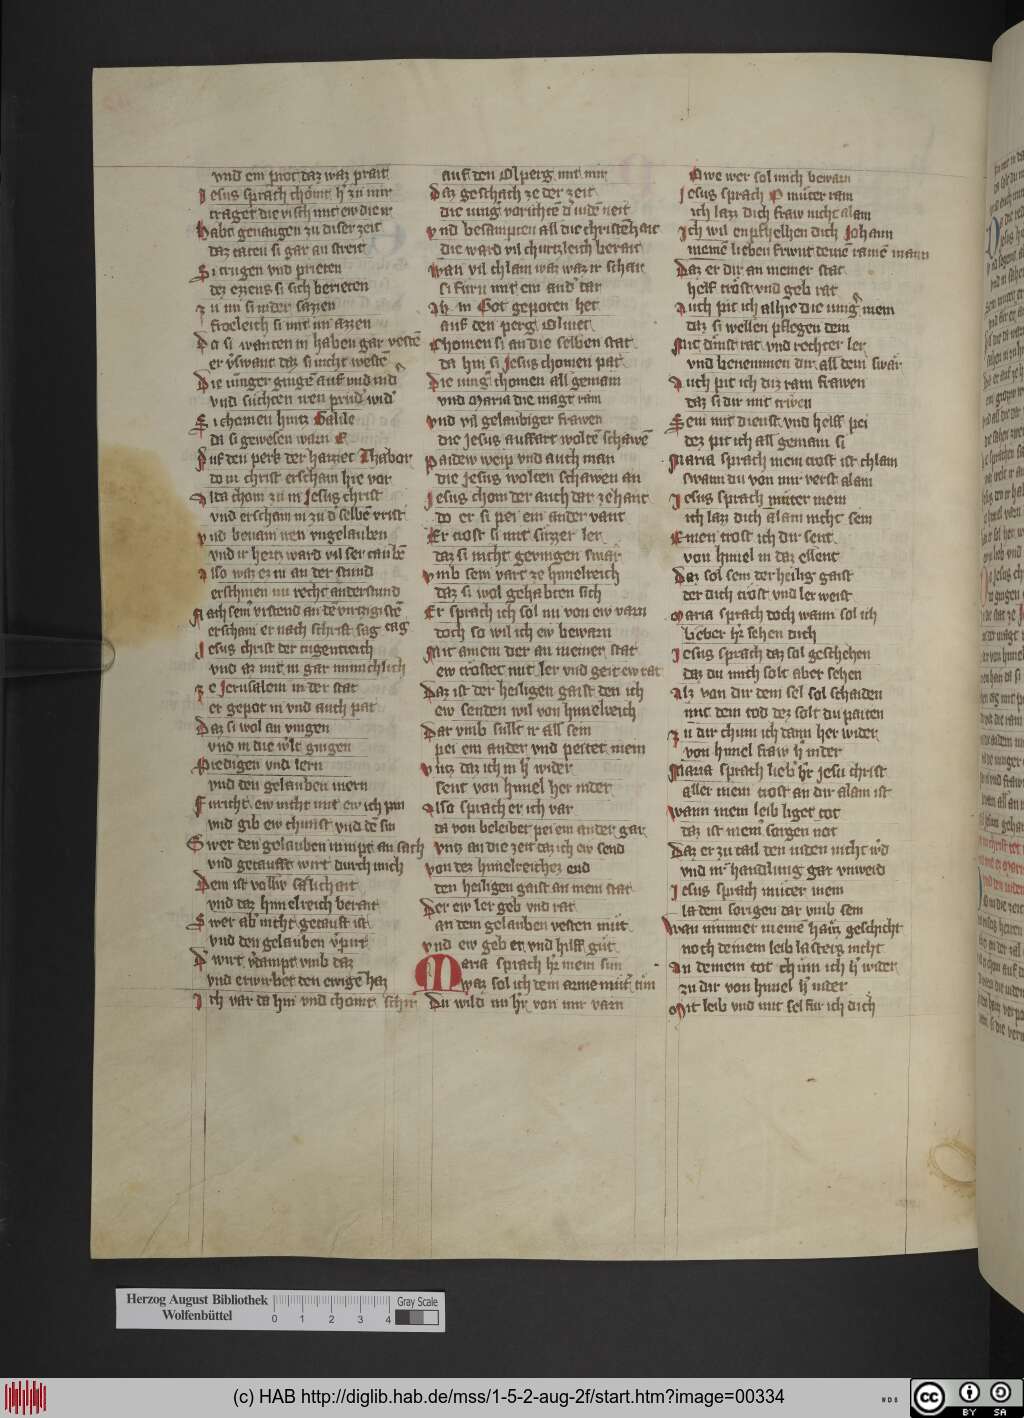 vnd ein prot daz waz prait
Jesus sprach chomt her zu mir
traget die visch mit ew die ir
Habt geuangen zu diser zeit
daz taten si gar an streit
Si trugen vnd prieten
dez ezzens si sich berieten
zu im si nider sazzen
froeleich si mit im azzen
Do si wanten in haben gar vestē
er vswant daz si nicht westē
Die iunger gingē auf vnd nid
vnd suchten iren prud wid
Si chomen hintz Galile
da si gewesen warn E
Auf den perk der haizzet Thabor
do in christ erschain hie vor
Alda chom zu in Jesus christ
vnd erschain in zu d selbē vrist
vnd benam iren vngelauben
vnd ir hertz ward vil ser taubē
Also waz er in an der stund
erschinen nu recht anderstund
Nach sein vrstend an dē virtzigistē
erschain er nach schrift sag tag
Jesus christ der tugentreich
vnd az mit in gar minnchlich
ze Jerusalem in der stat
er gepot in vnd auch pat
Daz si wol an vingen
vnd in die wlt gingen
Predigen vnd lern
vnd den gelauben mern
Furicht ew nicht mit ew ich pin
vnd gib ew chunst vnd dē sin
Swer den gelauben nimpt an sich
vnd getaufft wirt durch mich
Dem ist voller sälichait
vnd daz himelreich berait
Swer ab nicht getauft ist
vnd den gelauben vpirt
D wirt vdampt vmb daz
vnd erwirbet den ewigē haz
Ich var da hin vnd chomt schir
auf den Olperg mit mir
Daz geschach ze der zeit
die iung vorichtē d iudē neit
vnd besampten all die christēhait
die ward vil churtzleich berait
wan vil chlain waz waz ir schar
si furn mit ein and dar
Als in Got gepoten het
auf den perg Oliuet
Chomen si an die selben stat
da hin si Jesus chomen pat
Die iung chomen all gemain
vnd Maria die magt rain
vnd vil gelaubiger frawen
die Jesus auffart woltē schawē
Paidew weip vnd auch man
die Jesus wolten schawen an
Jesus chom der auch dar zehant
do er si pei ein ander vant
Er trost si mit suzzer ler
daz si nicht gevingen swar
vmb sein vart ze himelreich
daz si wol gehabten sich
Er sprach ich sol nu von ew varn
doch so wil ich ew bewarn
Mit ainem der an meiner stat
ew trostet mit ler vnd geit ew rat
Daz ist der heiligen gaist den ich
ew senden wil von himelreich
Dar vmb sullt ir all sein
pei ein ander vnd peitet mein
vntz daz ich in h wider
sent von himel her nider
Also sprach er ich var
da von beleibet pei ein ander gar
vntz an die zeit daz ich ew send
von dez himelreichez end
den heiligen gaist an mein stat
Der ew ler geb vnd rat
an dem gelauben vesten mut
vnd ew geb er vnd hilff gut
Maria sprach hr mein sun
waz sol ich dein arme mut tun
Du wild nu hr von mir varn
Owe wer sol mich bewarn
Jesus sprach O muter rain
ich laz dich fraw nicht alain
Ich wil enpfhelhen dich Johann
meinē lieben frewnt deinē rainē mann
Daz er dir an meiner stat
helf trost vnd geb rat
Auch pit ich alhie die iung mein
daz si wellen pflegen dein
Mit dinst rat vnd rechter ler
vnd benemmen dir all dein swar
Auch pit ich diz rain frawen
daz si dir mit triwen
Sein mit dienst vnd helff pei
dez pit ich all gemain si
Maria sprach mein trost ist chlain
swann du von mir verst alain
Jesus sprach muter mein
ich laz dich alain nicht sein
Einen trost ich dir sent
von himel in daz ellent
Daz sol sein der heilig gaist
der dich trost vnd ler weist
Maria sprach doch wann sol ich
lieber hr sehen dich
Jesus sprach daz sol geschehen
daz du mich solt aber sehen
Alz von dir dein sel sol schaiden
mit dem tod dez solt du paiten
zu dir chum ich dann her wider
von himel fraw h nider
Maria sprach lieb hr Jesu christ
aller mein trost an dir alain ist
wann mein leib liget tot
daz ist mein sorgen not
Daz er zu tail den iuden nicht wd
vnd mit handlung gar vnweid
Jesus sprach muter mein
la dein sorigen dar vmb sein
wan nimmer meinē hain geschicht
noch deinem leib lasterz nicht
An deinem tot chum ich h wider
zu dir von himel h nider
Mit leib vnd mit sel für ich dich
Herzog August Bibliothek
Wolfenbüttel
0 1 2 3 4
Gray Scale
(c) HAB http://diglib.hab.de/mss/1-5-2-aug-2f/start.htm?image=00334
WDB
cc BY SA